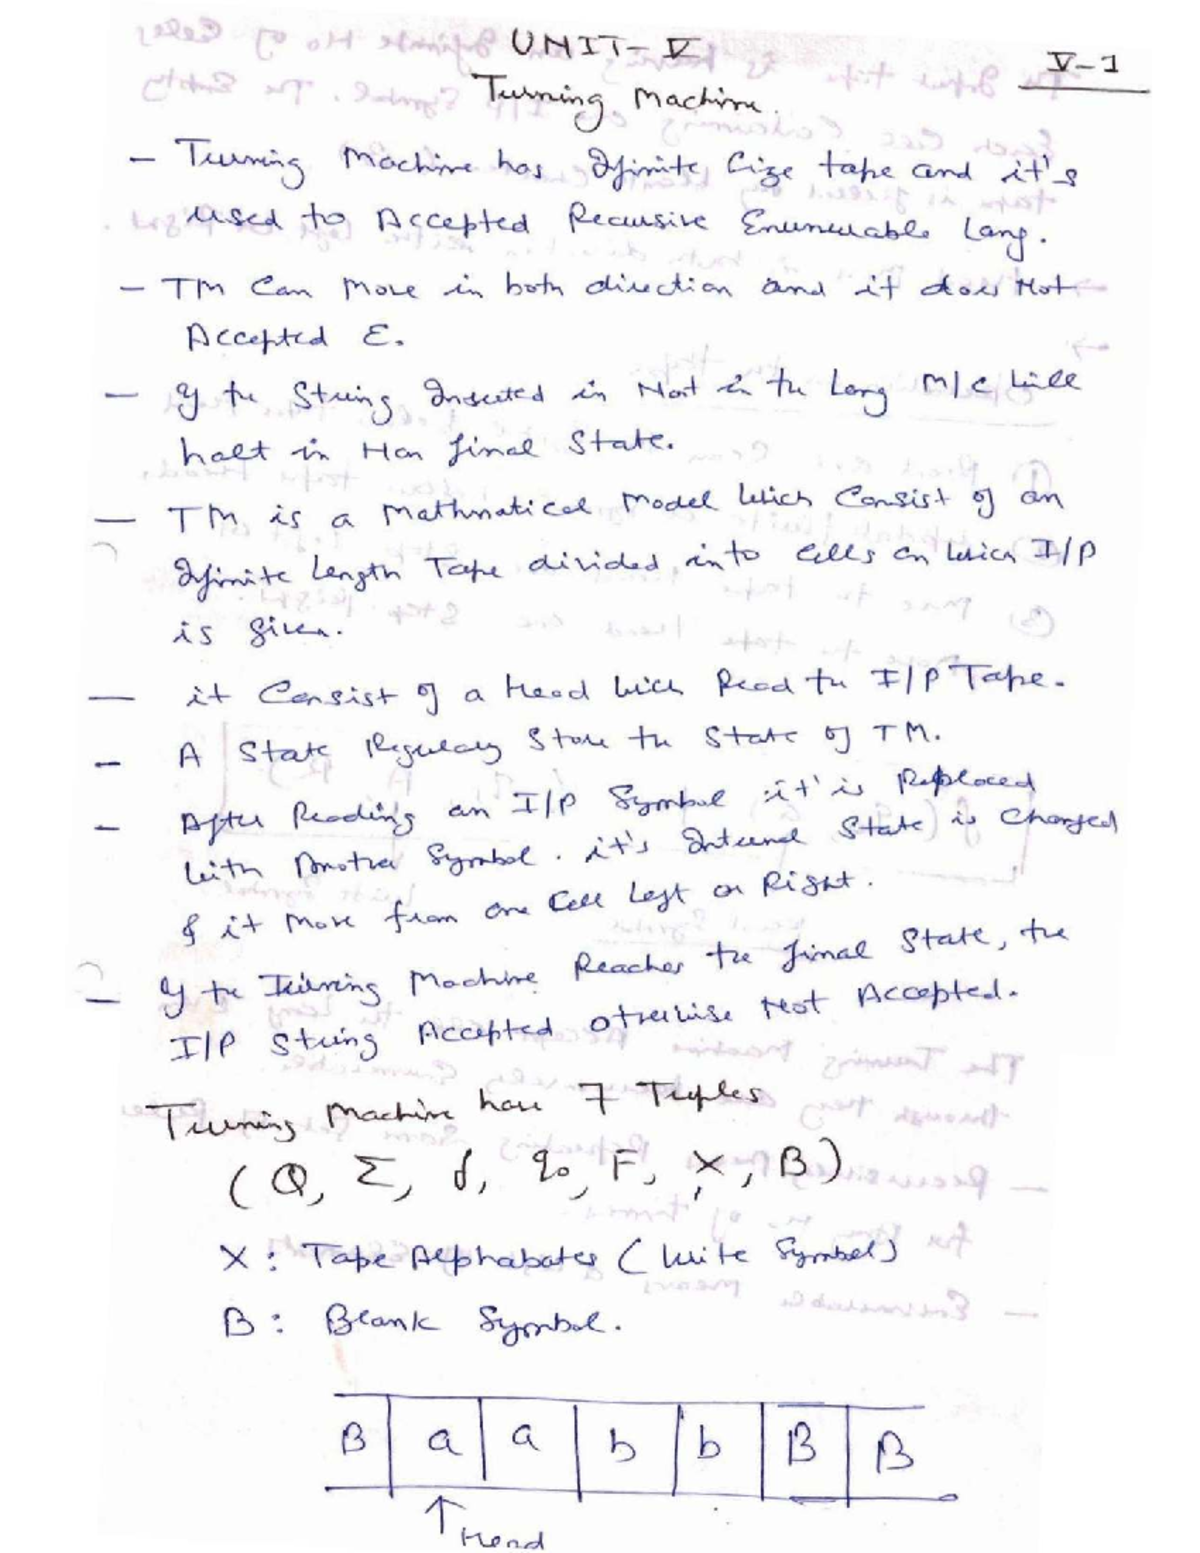 UNIT-V
V-1
Turning Machine.
- Turning Machine has Infinite Size tape and it's
used to Accepted Recursive Enumerable Lang.
- TM Can Move in both direction and it does Not
Accepted ε.
- If the String Inserted in Not in the Lang M/C will
halt in Non final State.
- TM is a Mathmatical Model Which Consist of an
Infinite Length Tape divided into Cells on which I/P
is given.
- it Consist of a Head which Read the I/P Tape.
- A State Store the State of TM.
- After Reading an I/P Symbol it' is Replaced
with Another Symbol. it's Internal State is Changed
& it Move from one Cell Left or Right.
- If the Turning Machine Reaches the final State, the
I/P String Accepted otherwise Not Accepted.
Turning Machine have 7 Tuples
(Q, Σ, δ, q0, F, X, B)
X: Tape Alphabates (Write Symbol)
B: Blank Symbol.
B a a b b B B
↑ Head